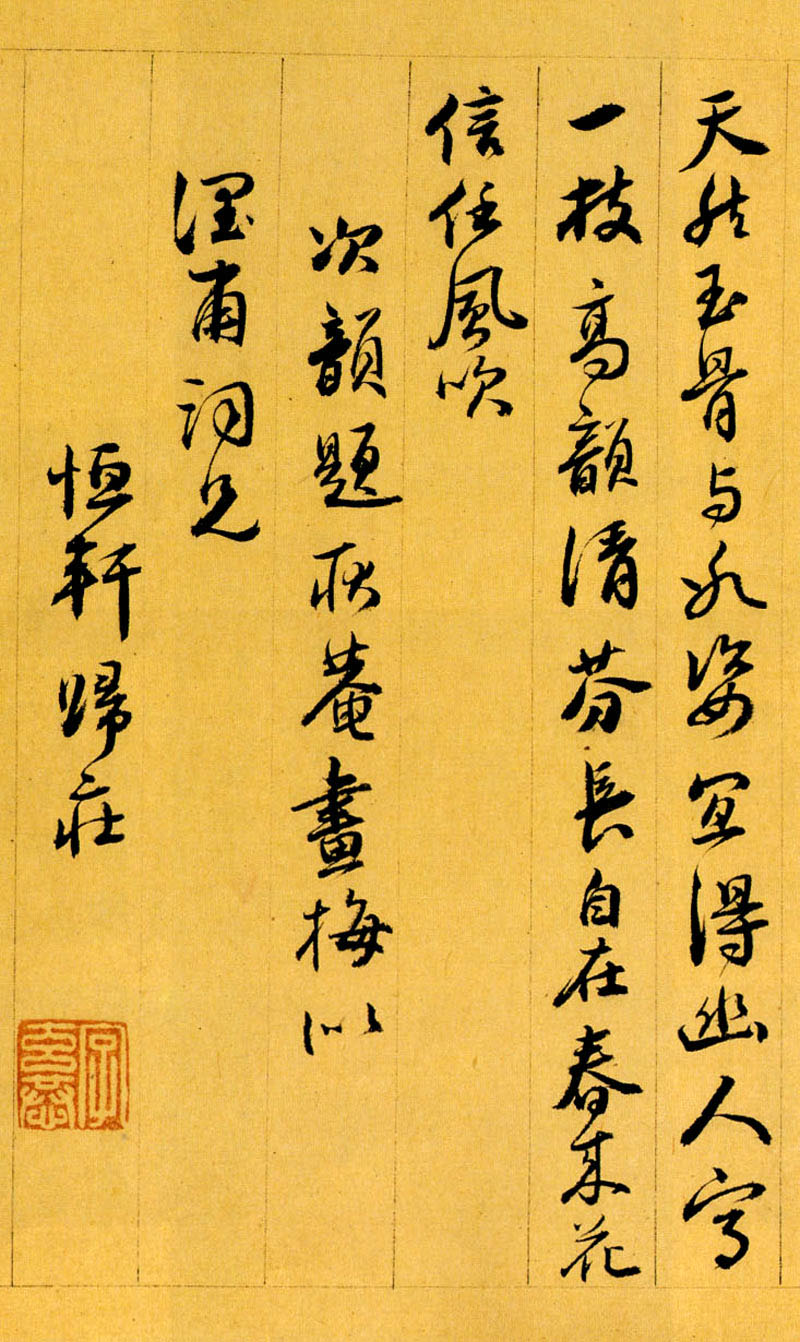 天然玉骨与冰姿宜得幽人写
一枝高韻清芬長自在春来花
信任風吹
次韻題秋菴畫梅似
甫詞兄
恒軒歸莊